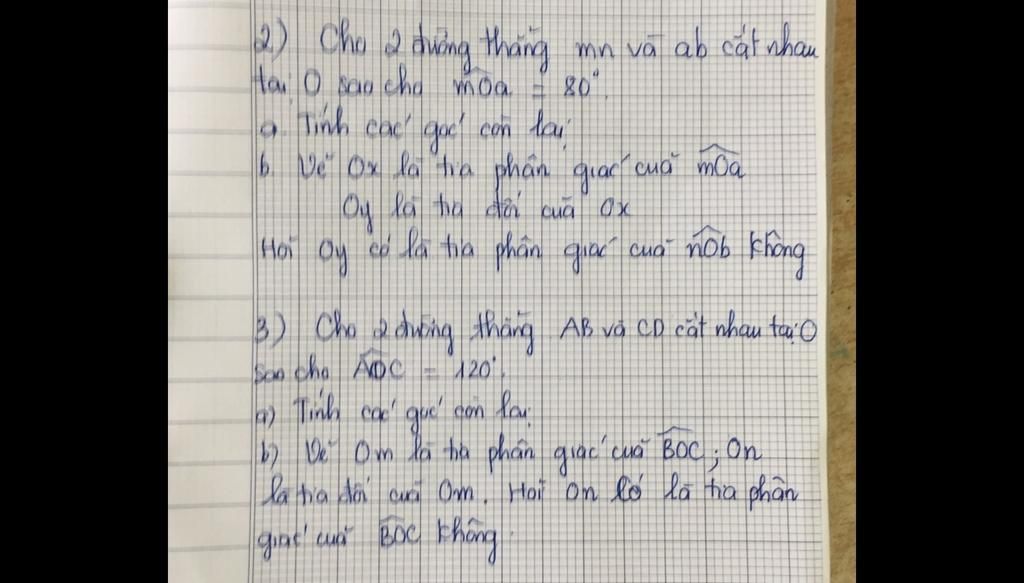 2) Cho 2 đường thẳng mn và ab cắt nhau
tại O sao cho mOa = 80°.
a. Tính các góc còn lại
b Vẽ Ox là tia phân giác của mOa
Oy là tia đối của Ox
Hỏi Oy có là tia phân giác của nOb không
3) Cho 2 đường thẳng AB và CD cắt nhau tại O
sao cho AOC = 120°.
a) Tính các góc còn lại
b) Vẽ Om là tia phân giác của BOC; On
là tia đối của Om. Hỏi On có là tia phân
giác của BOC không.